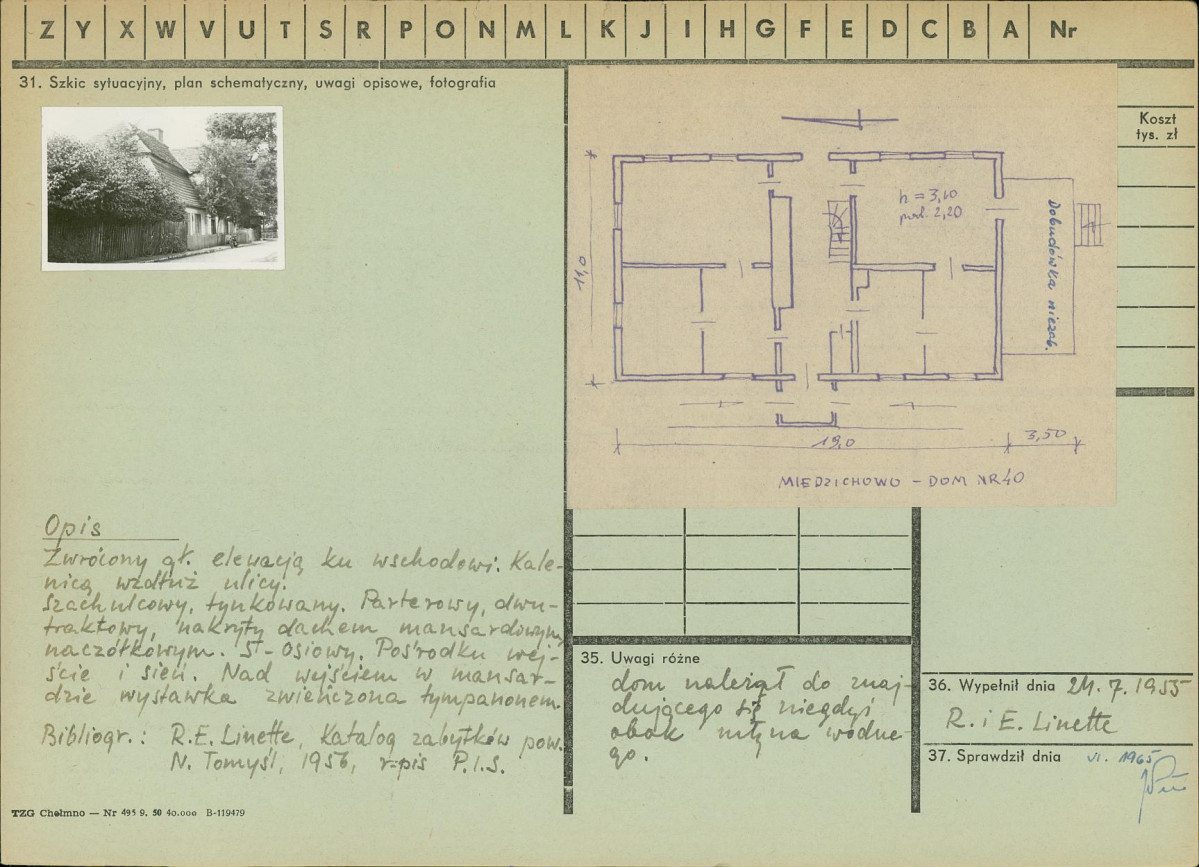 Z Y X W V U T S R P O N M L K J I H G F E D C B A Nr
31. Szkic sytuacyjny, plan schematyczny, uwagi opisowe, fotografia
Koszt
tys. zł
h = 3,10
pod. 2,20
Dobudówka niezab.
11,0
19,0
3,50
MIEDZICHOWO – DOM NR 40
Opis
Zwrócony gł. elewacją ku wschodowi. Kale-
nicą wzdłuż ulicy.
Szachulcowy, tynkowany. Parterowy, dwu-
traktowy, nakryty dachem mansardowym
naczółkowym. 5-osiowy. Pośrodku wej-
ście i sień. Nad wejściem w mansar-
dzie wystawka zwieńczona tympanonem.
Bibliogr.: R.E. Linette, Katalog zabytków pow.
N. Tomyśl, 1956, r-pis P.I.S.
TZG Chełmno — Nr 495 9. 50 40.000 B-119479
35. Uwagi różne
dom należał do znaj-
dującego się niegdyś
obok młyna wodne-
go.
36. Wypełnił dnia 24.7.1955
R. i E. Linette
37. Sprawdził dnia VI. 1965